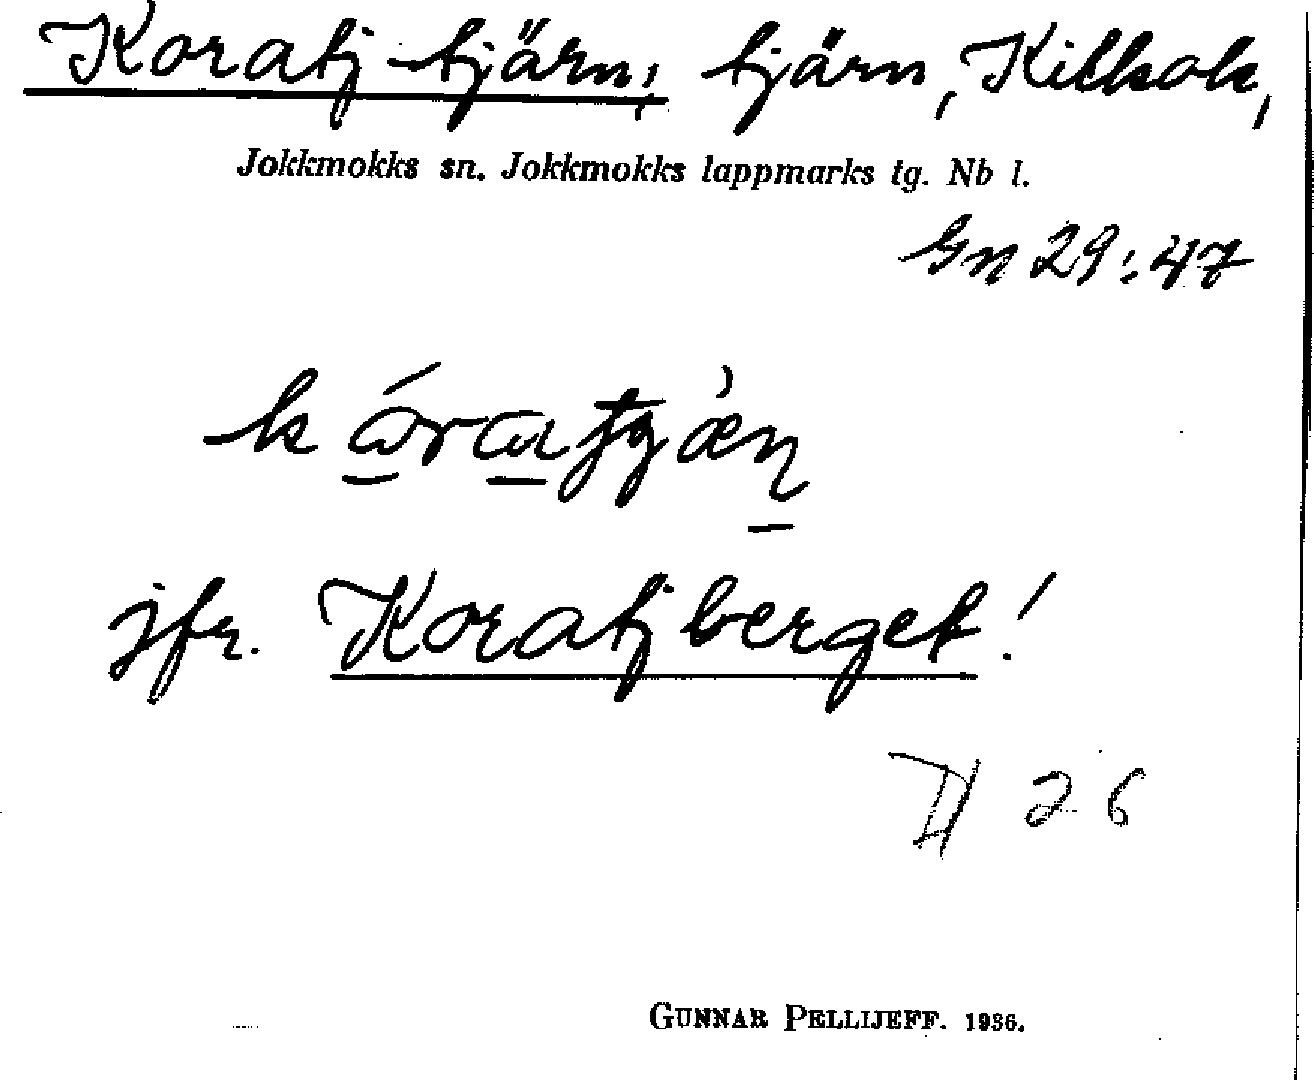 Koratj-tjärn; tjärn, Kitkok,
Jokkmokks sn. Jokkmokks lappmarks tg. Nb l.
Gn 29:47
jfr. Koratjberget!
26
GUNNAR PELLIJEFF. 1936.